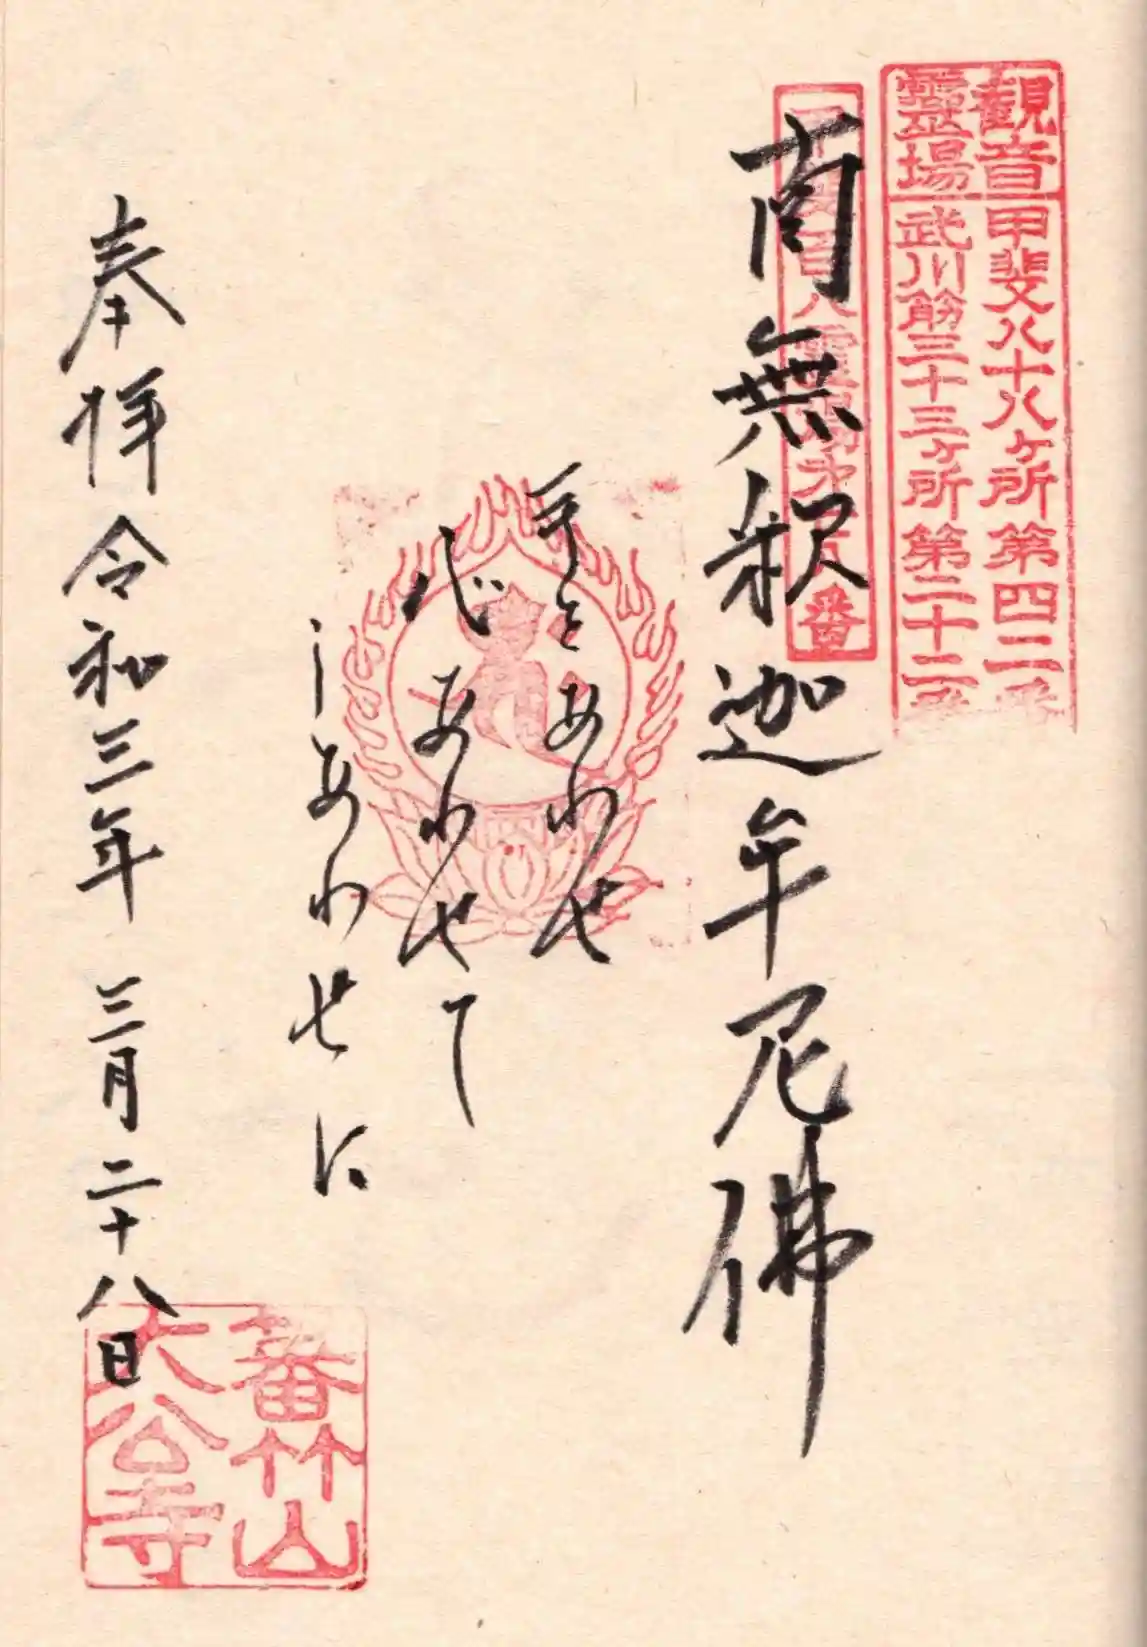 観音霊場
甲斐八十八ヶ所第四二番
武川筋三十三ヶ所第二十二番
南無釈迦牟尼佛
手とあわせ
心あわせて
しあわせに
奉拝 令和三年 三月二十八日
蕃竹山
大公寺